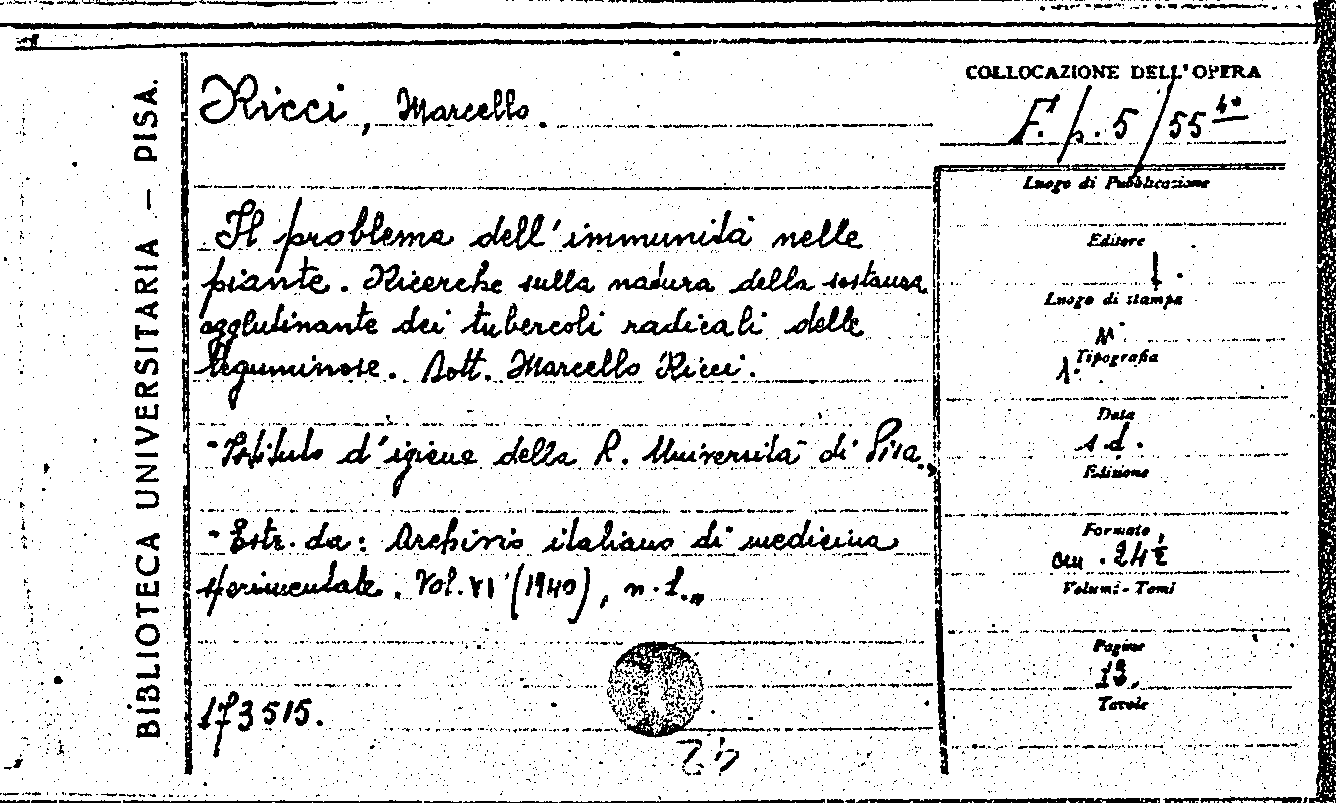 BIBLIOTECA UNIVERSITARIA — PISA.
Ricci, Marcello.
Il problema dell'immunità nelle
piante. Ricerche sulla natura della sostanza
agglutinante dei tubercoli radicali delle
leguminose. Dott. Marcello Ricci.
"Istituto d'igiene della R. Università di Pisa."
"Estr. da: Archivio italiano di medicina
sperimentale. Vol. VI (1940), n. 1."
173515.
42
COLLOCAZIONE DELL'OPERA
F. p. 5/55 4°
Luogo di Pubblicazione
Editore
Luogo di stampa
n.
Tipografia
Data
s.d.
Edizione
Formato
cm. 24 ½
Volumi - Tomi
Pagine
13.
Tavole